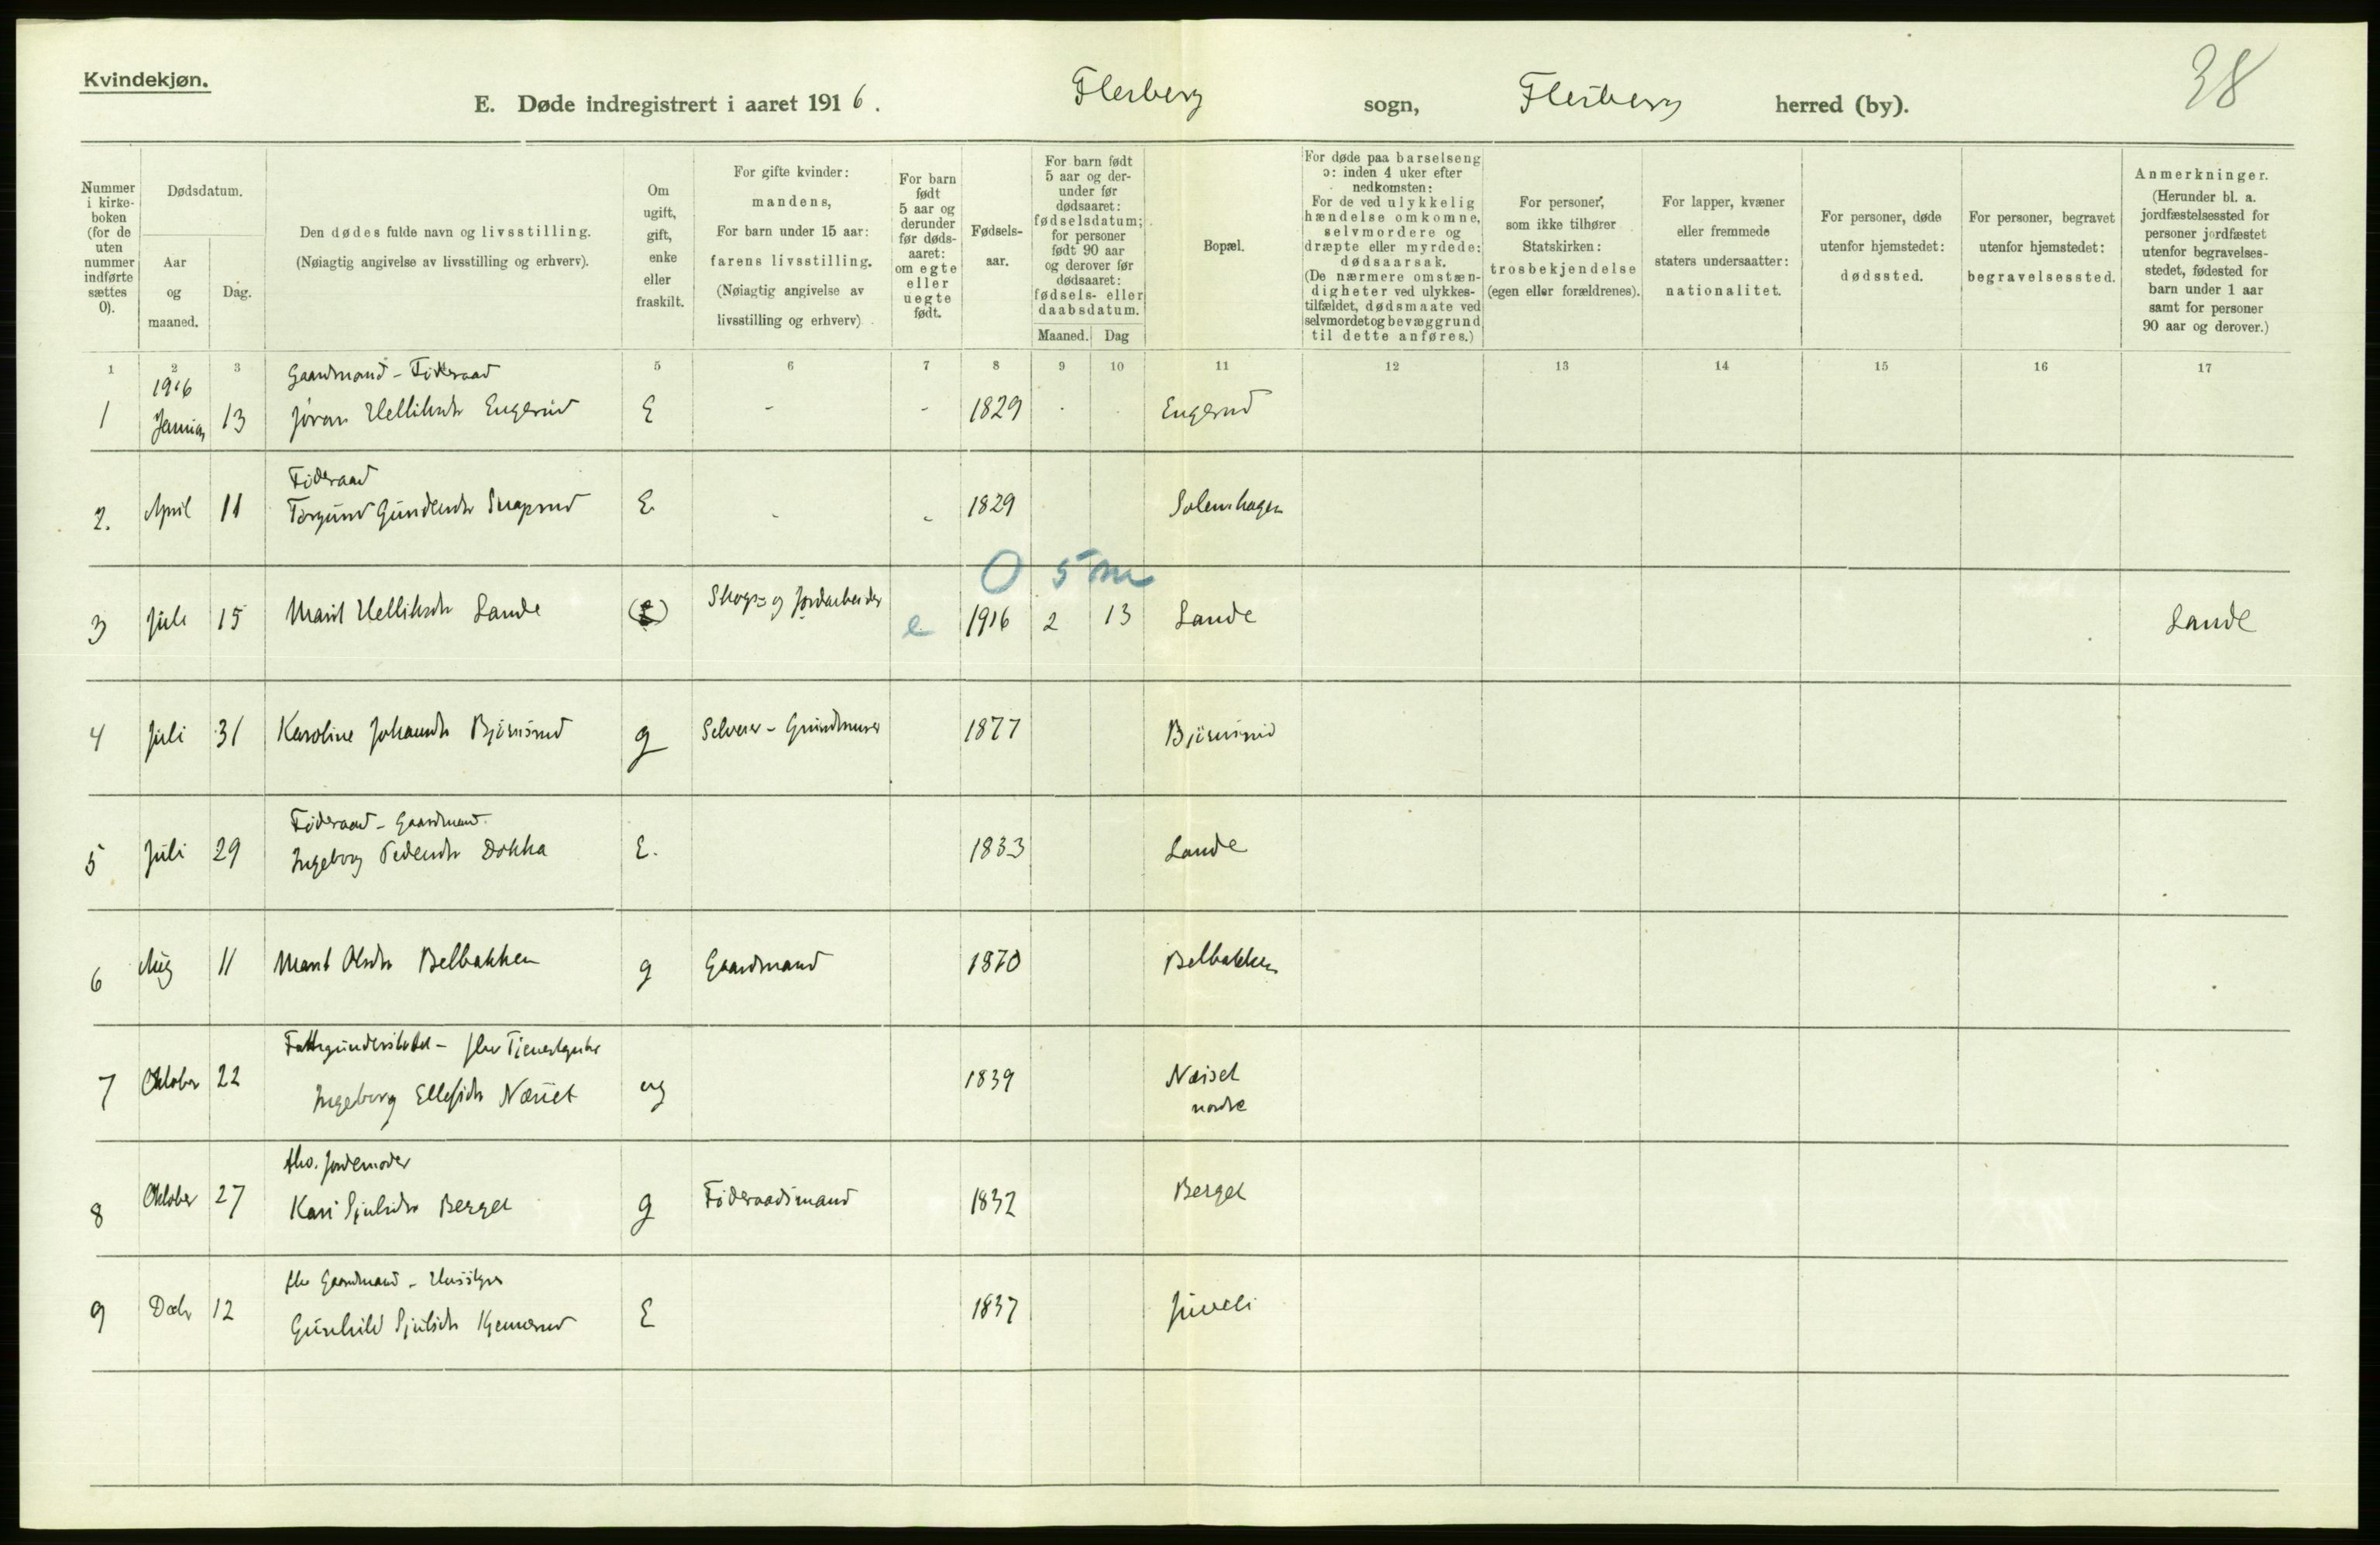 Kvindekjøn.
38
E. Døde indregistrert i aaret 1916. Flesberg sogn, Flesberg herred (by).
Nummer i kirke- boken (for de uten nummer indførte sættes 0).
Dødsdatum.
Aar og maaned.
Dag.
Den dødes fulde navn og livsstilling.
(Nøiagtig angivelse av livsstilling og erhverv).
Om ugift, gift, enke eller fraskilt.
For gifte kvinder:
mandens,
For barn under 15 aar:
farens livsstilling.
(Nøiagtig angivelse av
livsstilling og erhverv)
For barn født 5 aar og derunder før døds- aaret: om egte eller uegte født.
Fødsels- aar.
For barn født 5 aar og der- under før dødsaaret: fødselsdatum; for personer født 90 aar og derover før dødsaaret: fødsels- eller daabsdatum.
Maaned. Dag
Bopæl.
For døde paa barselseng ɔ: inden 4 uker efter nedkomsten: For de ved ulykkelig hændelse omkomne, selvmordere og dræpte eller myrdede: dødsaarsak. (De nærmere omstæn- digheter ved ulykkes- tilfældet, dødsmaate ved selvmordet og bevæggrund til dette anføres.)
For personer, som ikke tilhører Statskirken: trosbekjendelse (egen eller forældrenes).
For lapper, kvæner eller fremmede staters undersaatter: nationalitet.
For personer, døde utenfor hjemstedet: dødssted.
For personer, begravet utenfor hjemstedet: begravelsessted.
Anmerkninger.
(Herunder bl. a. jordfæstelsessted for personer jordfæstet utenfor begravelses- stedet, fødested for barn under 1 aar samt for personer 90 aar og derover.)
1 2 3 5 6 7 8 9 10 11 12 13 14 15 16 17
1916
Gaardmand - Føderaad
1 Januar 13 Jøran Helliksdr Engerud E - - 1829 Engerud
Føderaad
2. April 11 Torgund Gundersdr E. - - 1829 Solemhagen
0 5 m
3 Juli 15 Marit Helliksdr Lande Skogs- og Jordarbeider e 1916 2 13 Lande Lande
4 Juli 31 Karoline Johannsdr Bjørnsrud g Selveier - Grundmurer 1877 Bjørnsrud
Føderaad - Gaardmand
5 Juli 29 Ingeborg Pedersdr Dokka E. 1833 Lande
6 Aug 11 Marit Olsdr Belbakken g Gaardmand 1870 Belbakken
Fattigunderstøttet - fhv Tjenestepike
7 Oktober 22 Ingeborg Ellefsdr Næset ug 1839 Næset
nordre
fhv. Jordemoder
8 Oktober 27 Kari Sjulsdr Berget g Føderaadsmand 1832 Berget
fhv Gaardmand -
9 Decbr 12 Gunhild Sjulsdr E 1837 Juveli